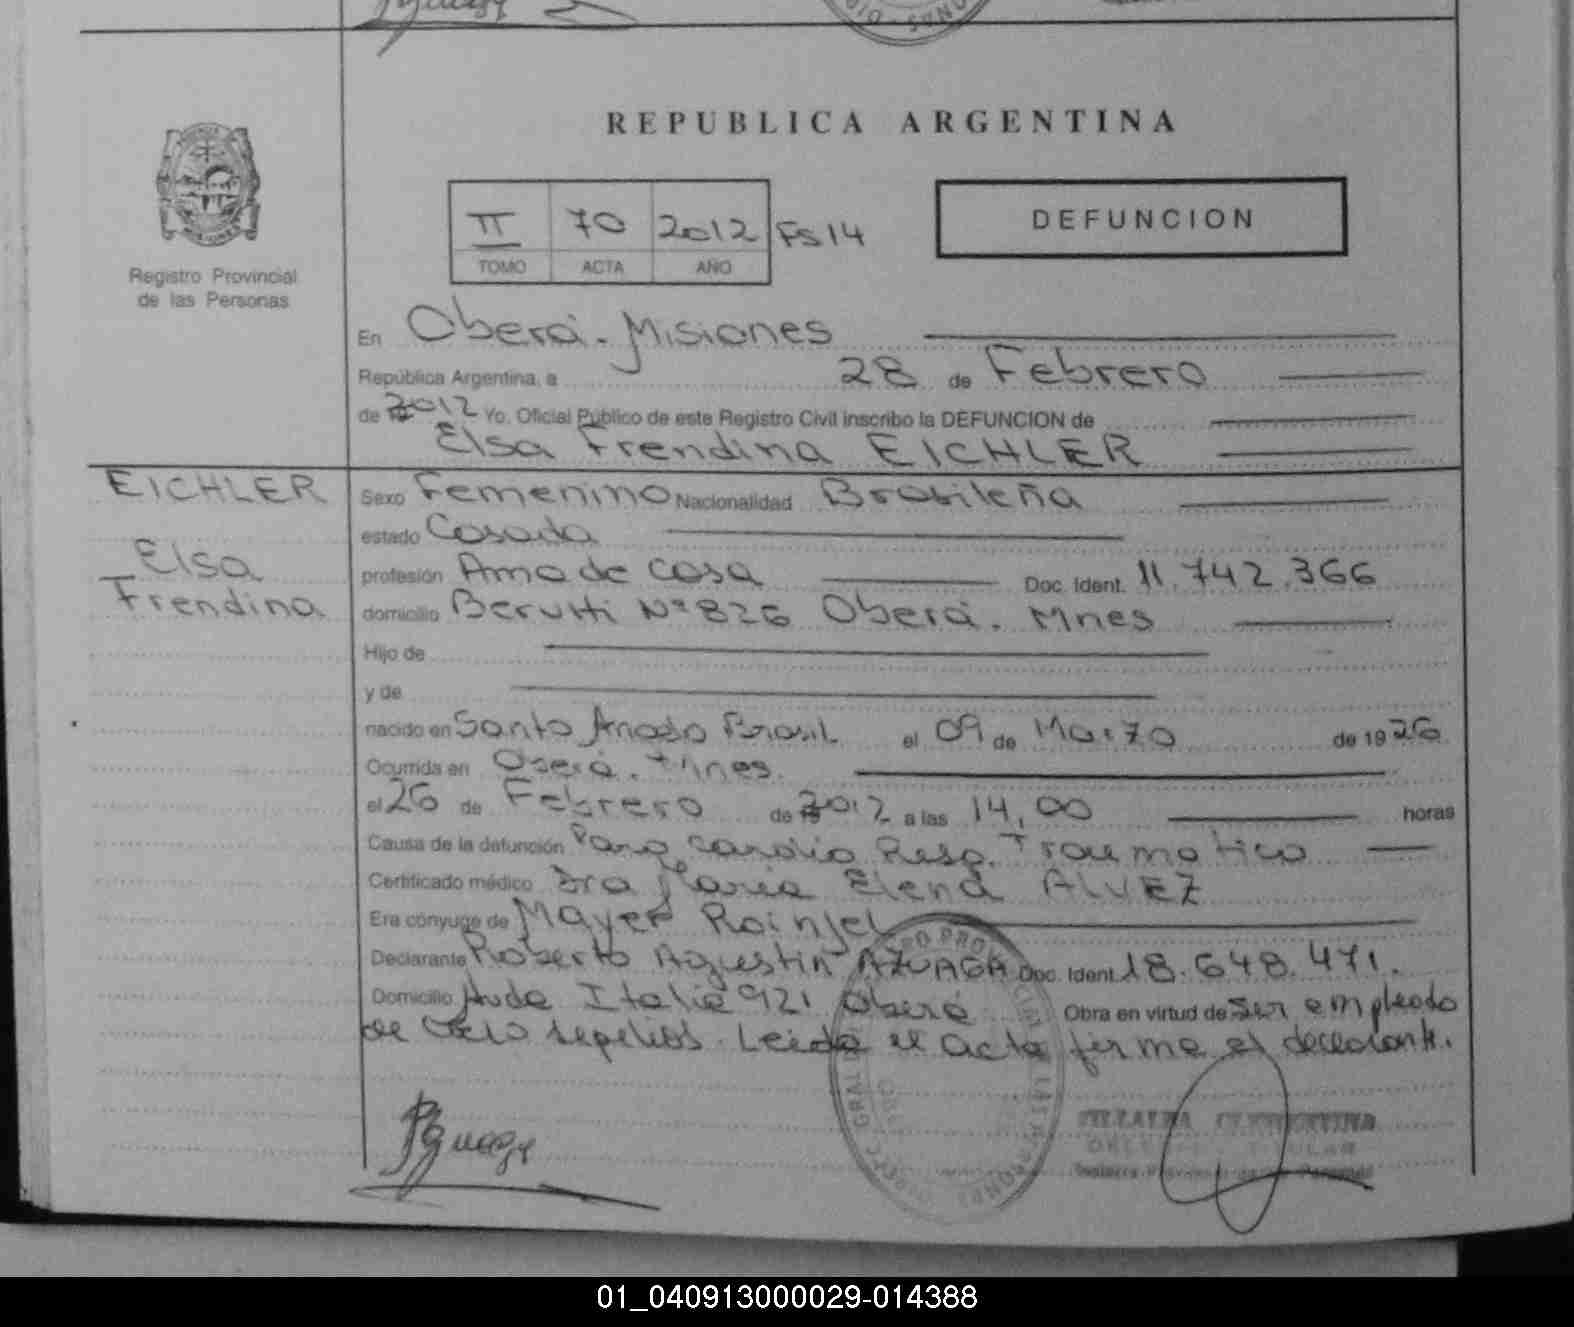 REPUBLICA ARGENTINA
Registro Provincial
de las Personas
II 70 2012 Fs 14
TOMO ACTA AÑO
DEFUNCION
En Oberá - Misiones
República Argentina, a 28 de Febrero
de 2012 Yo, Oficial Público de este Registro Civil inscribo la DEFUNCION de
Elsa Frendina EICHLER
EICHLER
Elsa
Frendina
Sexo Femenino Nacionalidad Brasileña
estado Casada
profesión Ama de casa Doc. Ident. 11.742.366
domicilio Berutti Nº 826 Oberá. Mnes
Hijo de
y de
nacido en Santo Brasil el 09 de Marzo de 1926
Ocurrida en Oberá. Mnes.
el 26 de Febrero de 2012 a las 14,00 horas
Causa de la defunción Paro Cardio Resp. Traumatico
Certificado médico Dra Maria Elena ALVEZ
Era cónyuge de Mayer
Declarante Roberto Agustin AZUAGA Doc. Ident. 18.648.471.
Domicilio Avda Italia 921 Oberá Obra en virtud de ser empleado
de sepelios. Leida el acta firma el declarante.
01_040913000029-014388